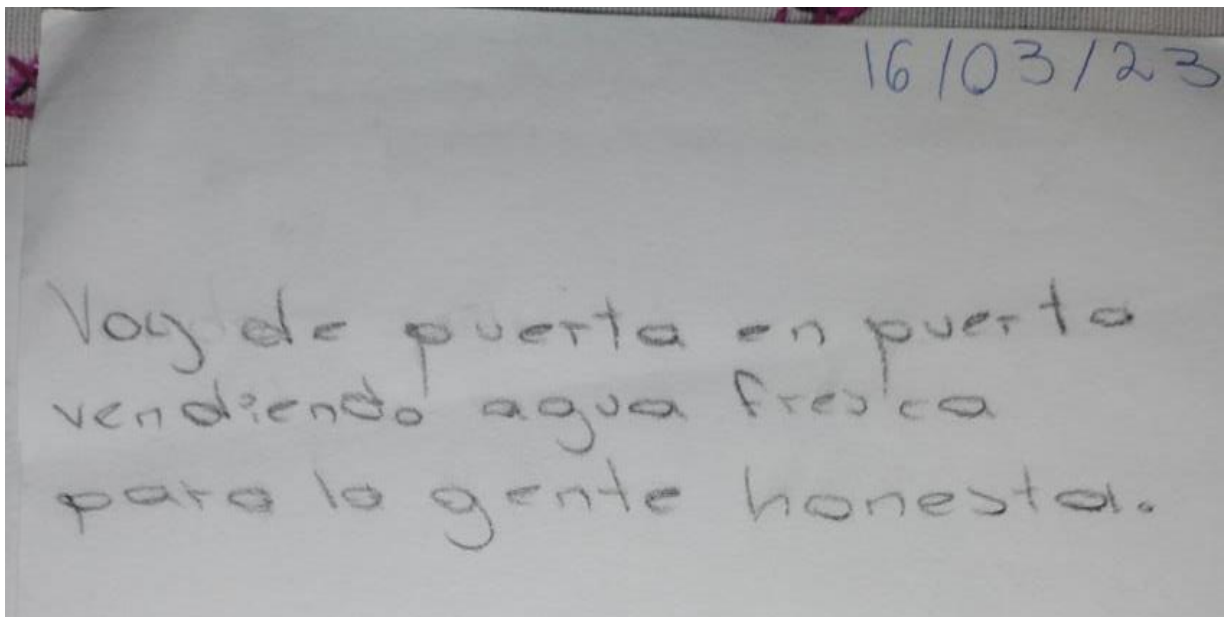 16/03/23
Voy de puerta en puerta
vendiendo agua fresca
para la gente honesta.